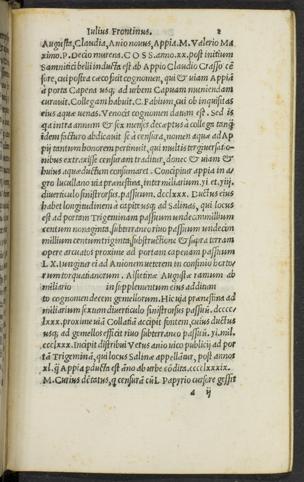 Iulius Frontinus. 2
Augusta, Claudia, Anio nouus, Appia. M. Valerio Ma
ximo. P. Decio murena. COSS. anno. xx. post initium
Samnitici belli inducta est ab Appio Claudio Crasso cē
sore, cui postea cæco fuit cognomen, qui & uiam Appiā
à porta Capena usq; ad urbem Capuam muniendam
curauit. Collegam habuit. C. Fabium, cui ob inquisitas
eius aquæ uenas. Venocis cognomen datum est. Sed is
qa intra annum & sex menses deceptus à collega tanq̄
idem facturo abdicauit se à censura, nomen aquæ ad Ap
pij tantum honorem pertinuit, qui multis tergiuersatio
nibus extraxisse censuram traditur, donec & uiam &
huius aquæ ductum consumaret. Concipitur appia in a
gro lucullano uia prænestina, inter miliarium. yi et, yiij.
diuerticulo sinistrorsus, passuum. dcclxxx. Ductus eius
habet longitudinem à capite usq; ad Salinas, qui locus
est ad portam Trigeminam passuum undecimmillium
centum nonaginta. subterraneo riuo passuum undecim
millium centum triginta, substructione & supra terram
opere arcuato proxime ad portam capenam passuum
LX. Iungitur ei ad Anionem ueterem in confinio horto
rum torquatianorum. Augustæ ramum ab
miliario in supplementum eius additum
to cognomen decem gemellorum. Hic uia prænestina ad
miliarium sextum diuerticulo sinistrorsus passuū. dcccc
lxxx. proxime uiā Collatiā accipit fontem, cuius ductus
usq; ad gemellos efficit riuo subterraneo passuū. yi. mil.
ccclxxx. Incipit distribui Vetus anio uico publicij ad por
tā Trigeminā, qui locus Salinæ appellātur, post annos
xl. q̄ Appia pducta est āno ab urbe cōdita. cccclxxxix.
M. Curius dētatus, q censurā cū L Papyrio cursore gessit
a ij